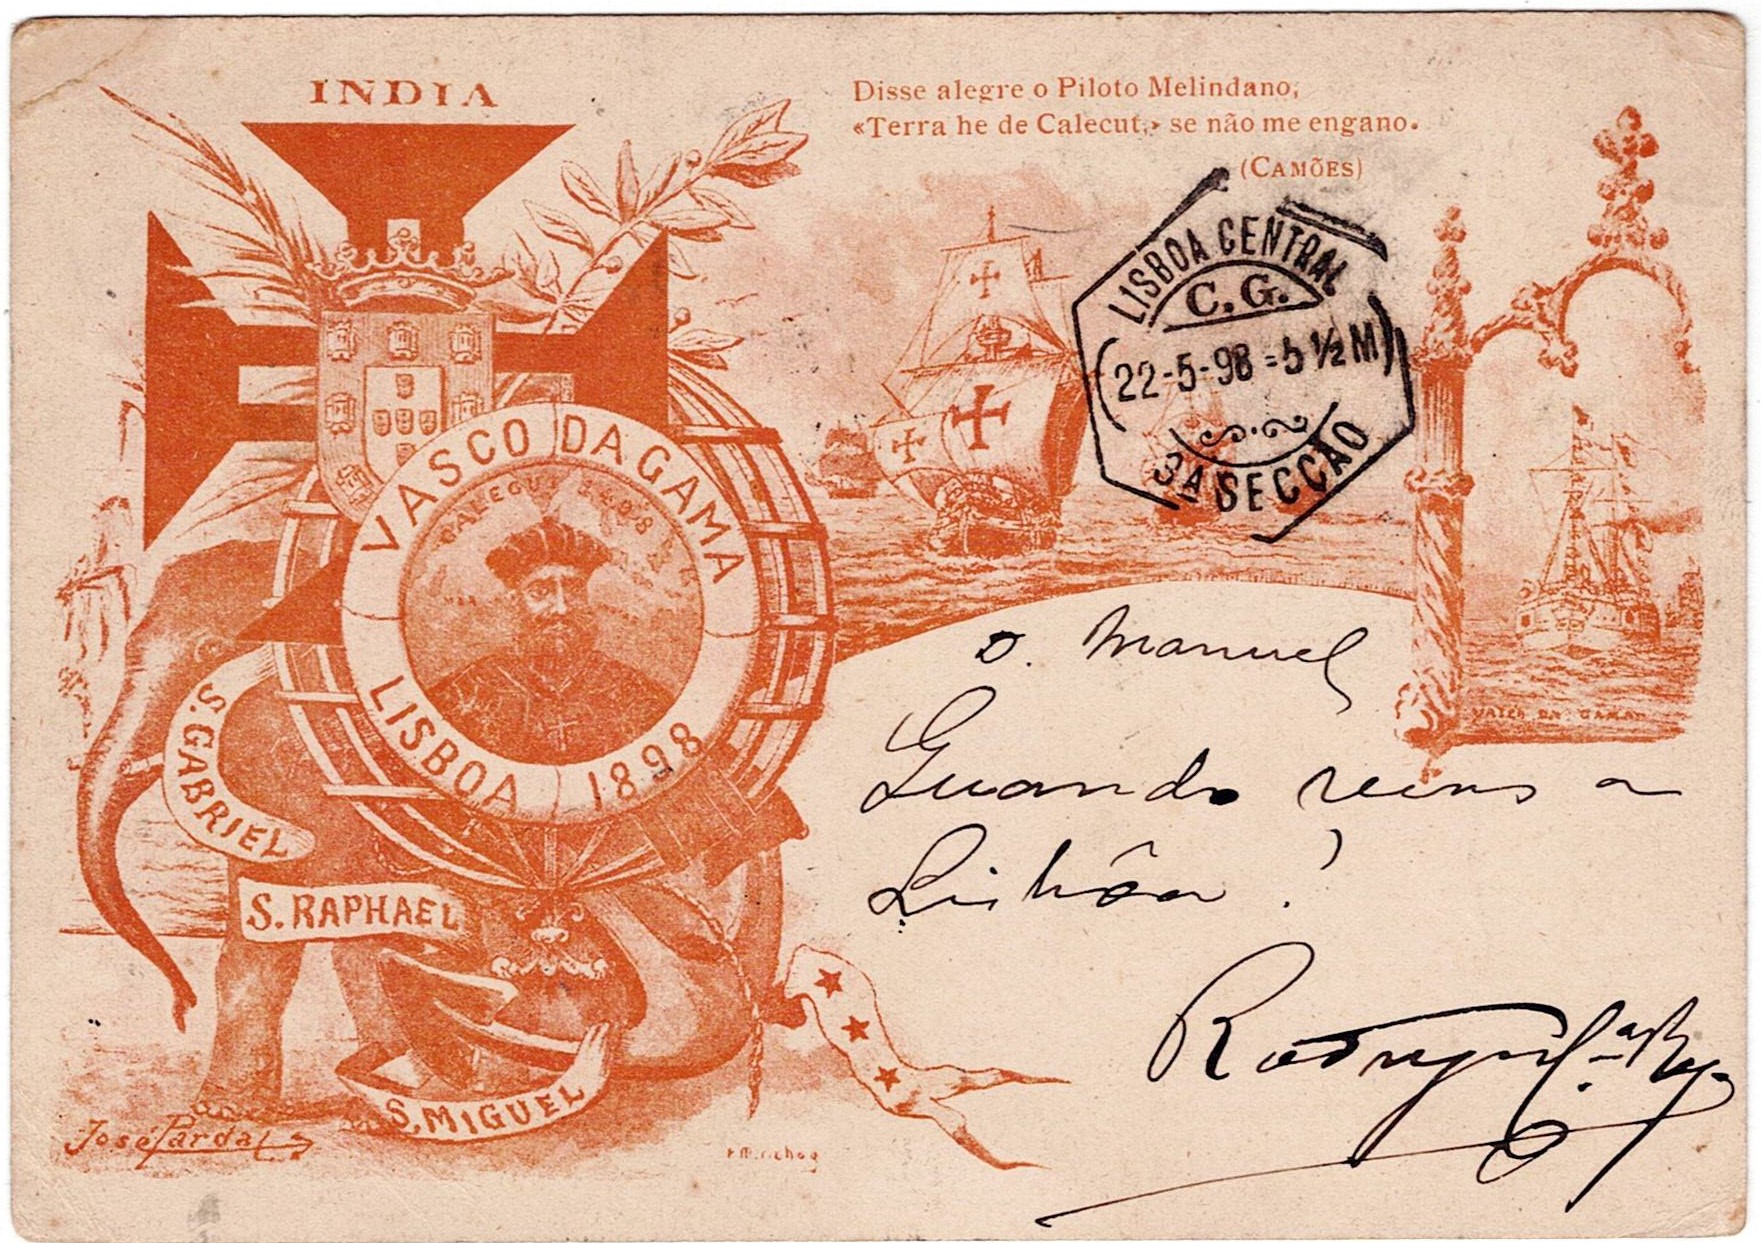 INDIA
Disse alegre o Piloto Melindano,
«Terra he de Calecut,» se não me engano.
(CAMÕES)
LISBOA CENTRAL
C. G.
22-5-98=5 ½ M
3A SECCÃO
VASCO DA GAMA
CALECUT 1498
LISBOA 1898
S. GABRIEL
S. RAPHAEL
S. MIGUEL
VASCO DA GAMA
D. Manuel
Quando vens a
Lisbôa?
José Pardal